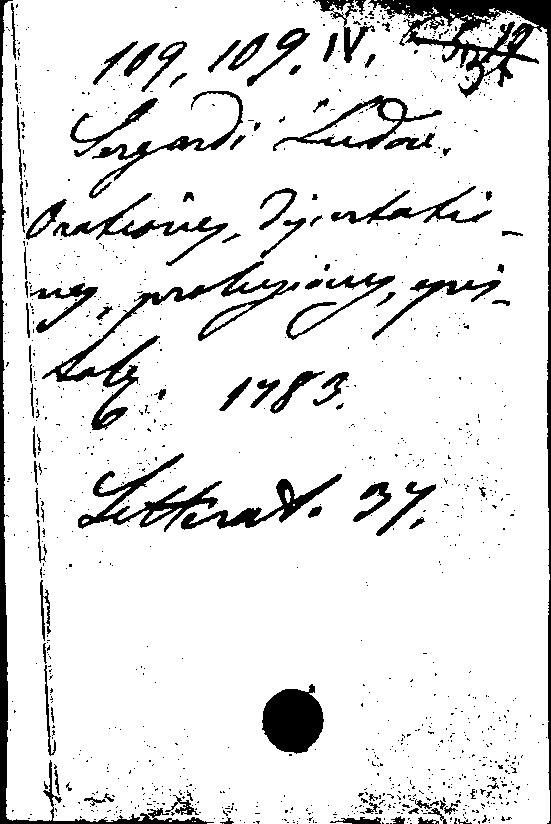 109, 109. IV.
Sergardi Ludov.
Orationes, dissertatio-
nes, prolusiones, epis-
tolae. 1783.
Litterat. 37.